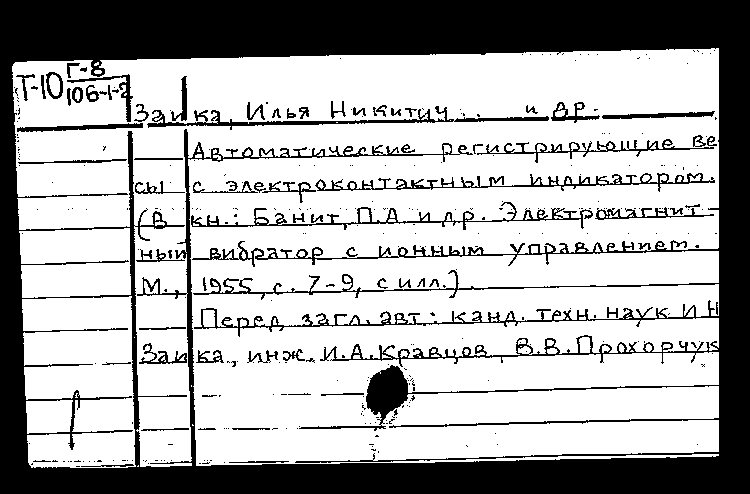 Т-10 Г-8
106-1-2
Заика, Илья Никитич. и др.
Автоматические регистрирующие ве
сы с электроконтактным индикатором.
(В кн.: Банит, П.А и др. Электромагнит-
ный вибратор с ионным управлением.
М., 1955, с. 7-9, с илл.).
Перед загл. авт: канд. техн. наук И Н
Заика, инж. И.А.Кравцов, В.В.Прохорчук